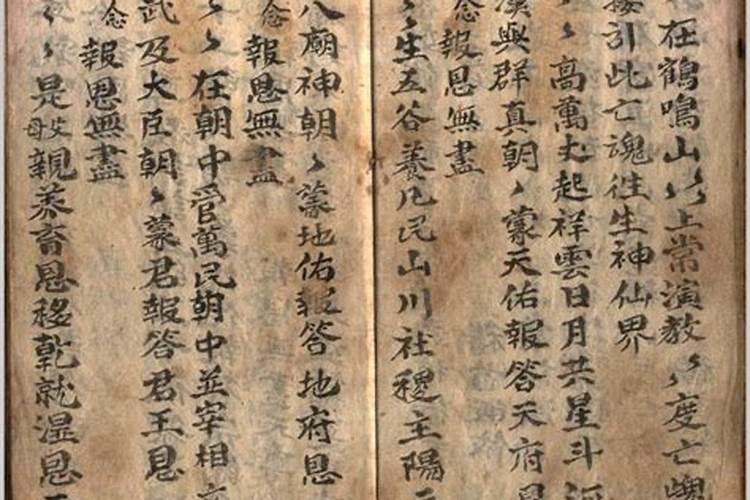 在鶴鳴山以上常演教〻度亡魂
接引此亡魂往生神仙界
〻〻高萬丈起祥雲日月共星斗
漢與群真朝〻蒙天佑報答天府恩
念報恩無盡
〻〻生五谷養凡民山川社稷主陽
八廟神朝〻蒙地佑報答地府恩
念報恩無盡
〻〻在朝中管萬民朝中並宰相
武及大臣朝〻蒙君報答君王恩
念報恩無盡
〻〻是父母親养育恩移乾就湿恩